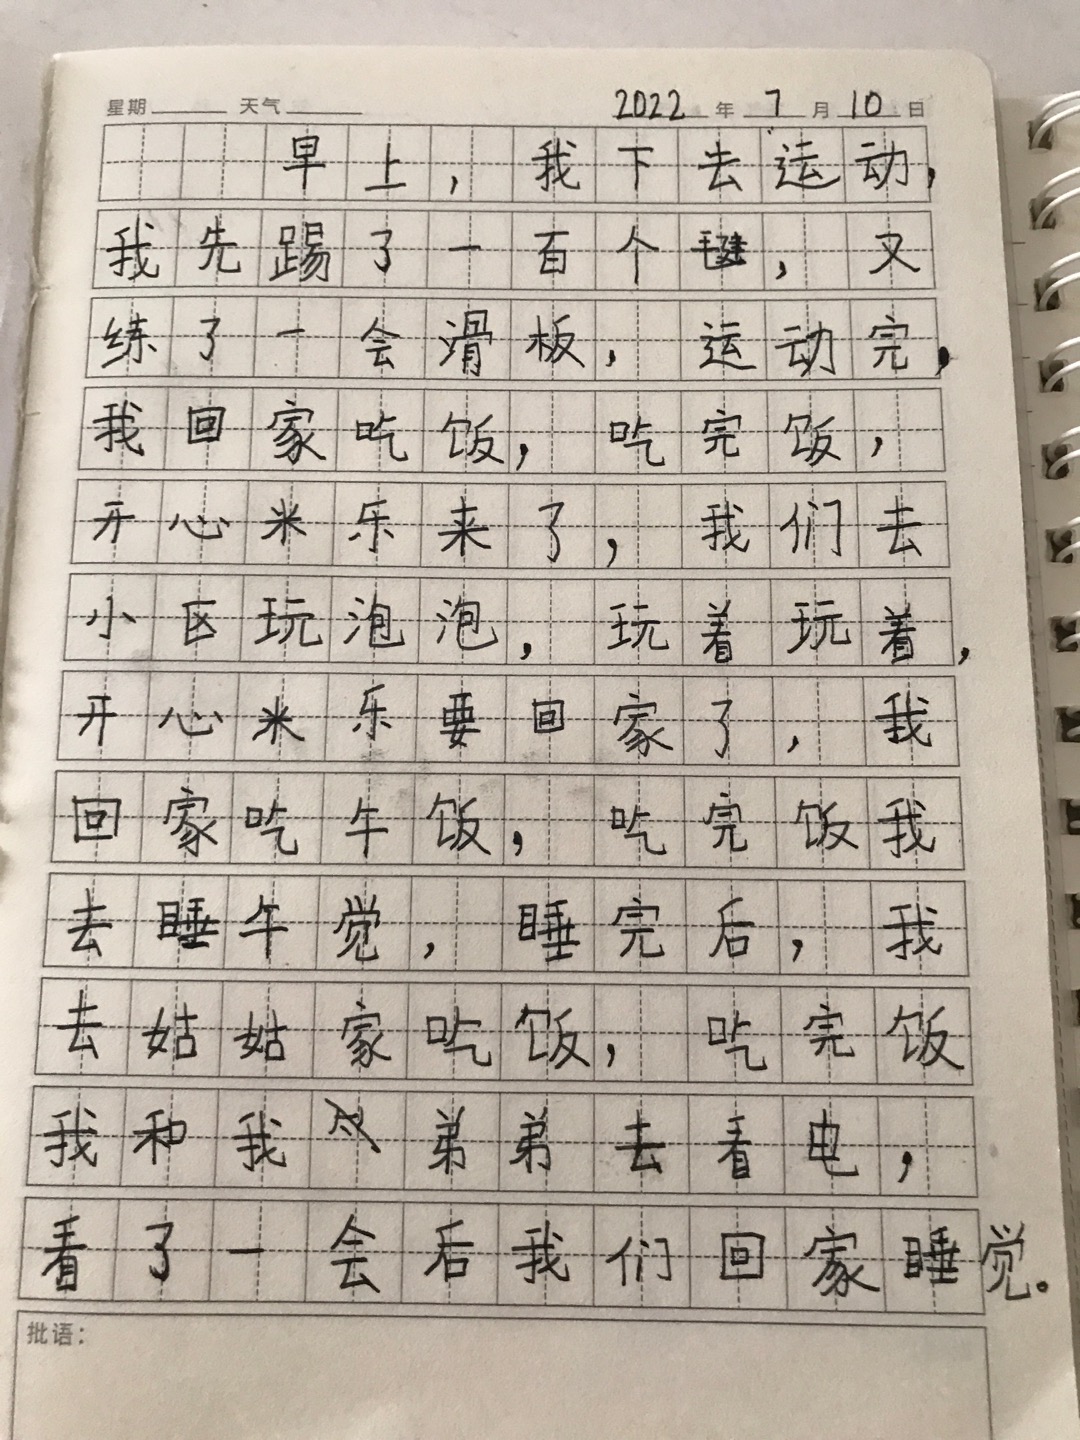 星期 天气 2022年7月10日
早上，我下去运动，
我先踢了一百个毽，又
练了一会滑板，运动完，
我回家吃饭，吃完饭，
开心米乐来了，我们去
小区玩泡泡，玩着玩着，
开心米乐要回家了，我
回家吃午饭，吃完饭我
去睡午觉，睡完后，我
去姑姑家吃饭，吃完饭
我和我弟弟去看电，
看了一会后我们回家睡觉。
批语：